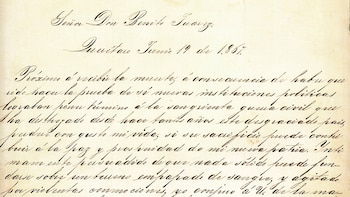 Señor Don Benito Juarez.
Querétaro Junio 19 de 1867.
Próximo á recibir la muerte, á consecuencia de haber que
rido hacer la prueba de si nuevas instituciones políticas
lograban poner término á la sangrienta guerra civil que
ha destrozado desde hace tantos años este desgraciado país,
perderé con gusto mi vida, si su sacrificio puede contri
buir á la paz y prosperidad de mi nueva patria. Inti
mamente persuadido de que nada sólido puede fun
darse sobre un terreno empapado de sangre, y agitado
por violentas conmociones, yo conjuro á V. de la ma